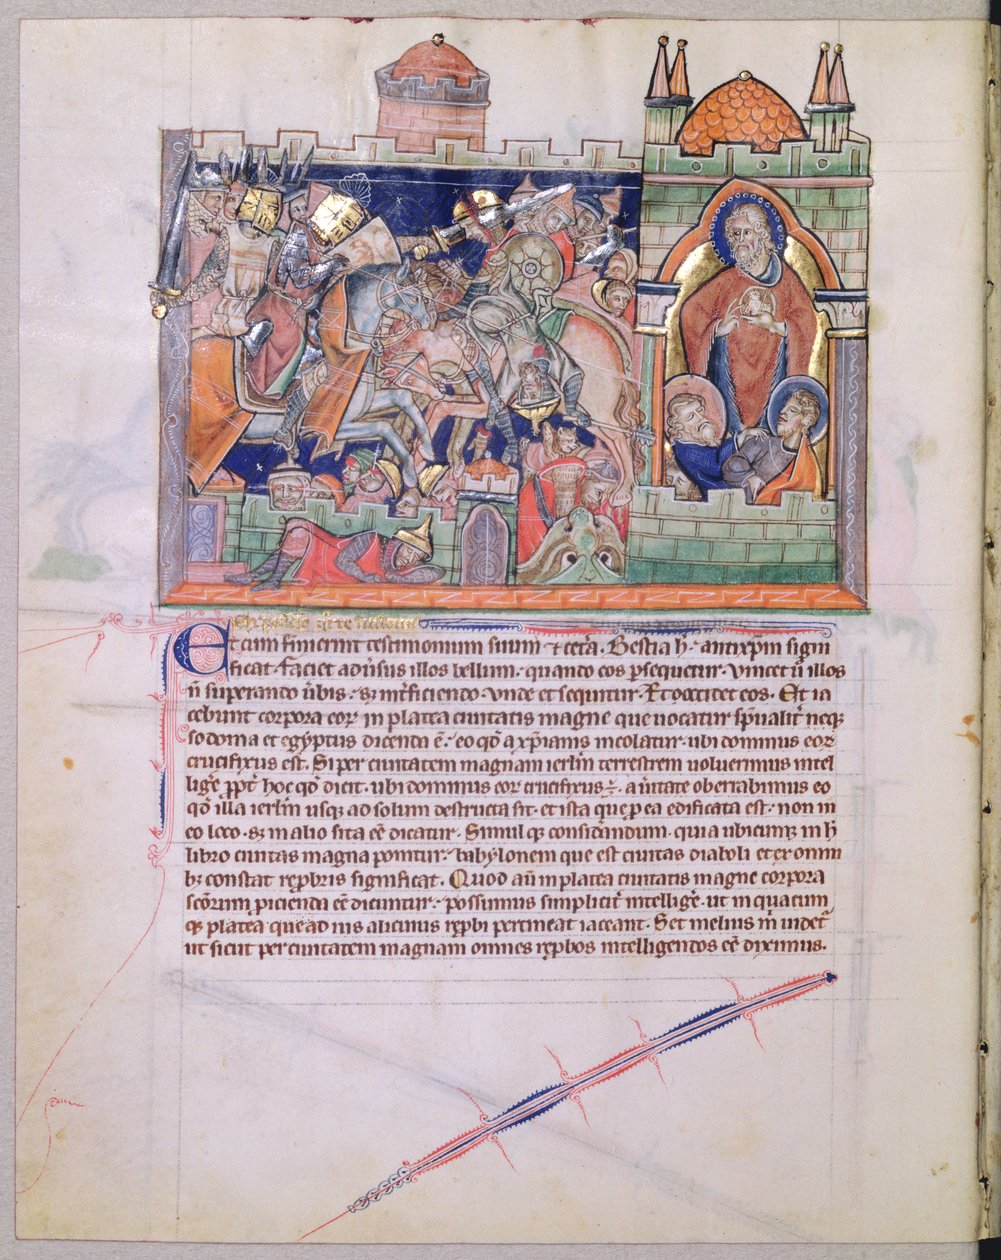 Et cum finierint testimonium suum · ⁊ cetˀa. Bestia h̅ · antixp̅m signi
ficat · faciet adu̅sus illos bellum · quando eos p̲sequetur · Vincet u̅ illos
n̅ superando u̅bis · sꝫ int̅ficiendo · vnde et sequitur · Et occidet eos · Et ia
cebunt corpora eoꝝ in platea ciuitatis magne que uocatur sp̅ualit̅
sodoma et egyptus dicenda e̅ · eo qd̕ a xp̅ianis incolatur · ubi dominus eoꝝ
crucifixus est. Si per ciuitatem magnam ierlm̅ terrestrem uoluerimus intel
lige̅ · ꝓpt̅ hoc qd̕ dicit · ubi dominus eoꝝ crucifixus · a u̅itate oberrabimus eo
qd̕ illa ierlm̅ usqꝫ ad solum destructa sit · et ista que p̲ ea edificata est · non in
eo loco · sꝫ in alio sita e̅e dicatur · Simul qꝫ considandum · quia ubicumqꝫ in h̅
libro ciuitas magna ponitur · babylonem que est ciuitas diaboli et ex omni
bꝫ constat rep̲bris significat. Quod au̅ in platea ciuitatis magne corpora
sc̅orum p̲icienda e̅e dicuntur · possumus simplicit̅ intellige̅ · ut in quacum
qꝫ platea que ad ius alicuius rep̲bi pertineat iaceant. Set melius m̅ uidet̅
ut sicut per ciuitatem magnam omnes rep̲bos intelligendos e̅e diximus.